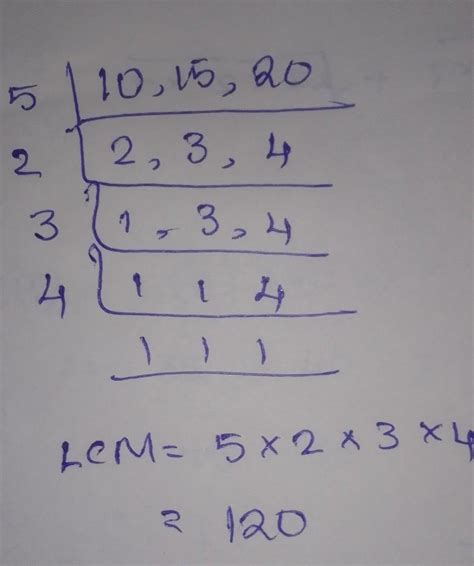 5 10, 15, 20
2 2, 3, 4
3 1, 3, 4
4 1 1 4
1 1 1
LCM = 5 × 2 × 3 × 4
= 120